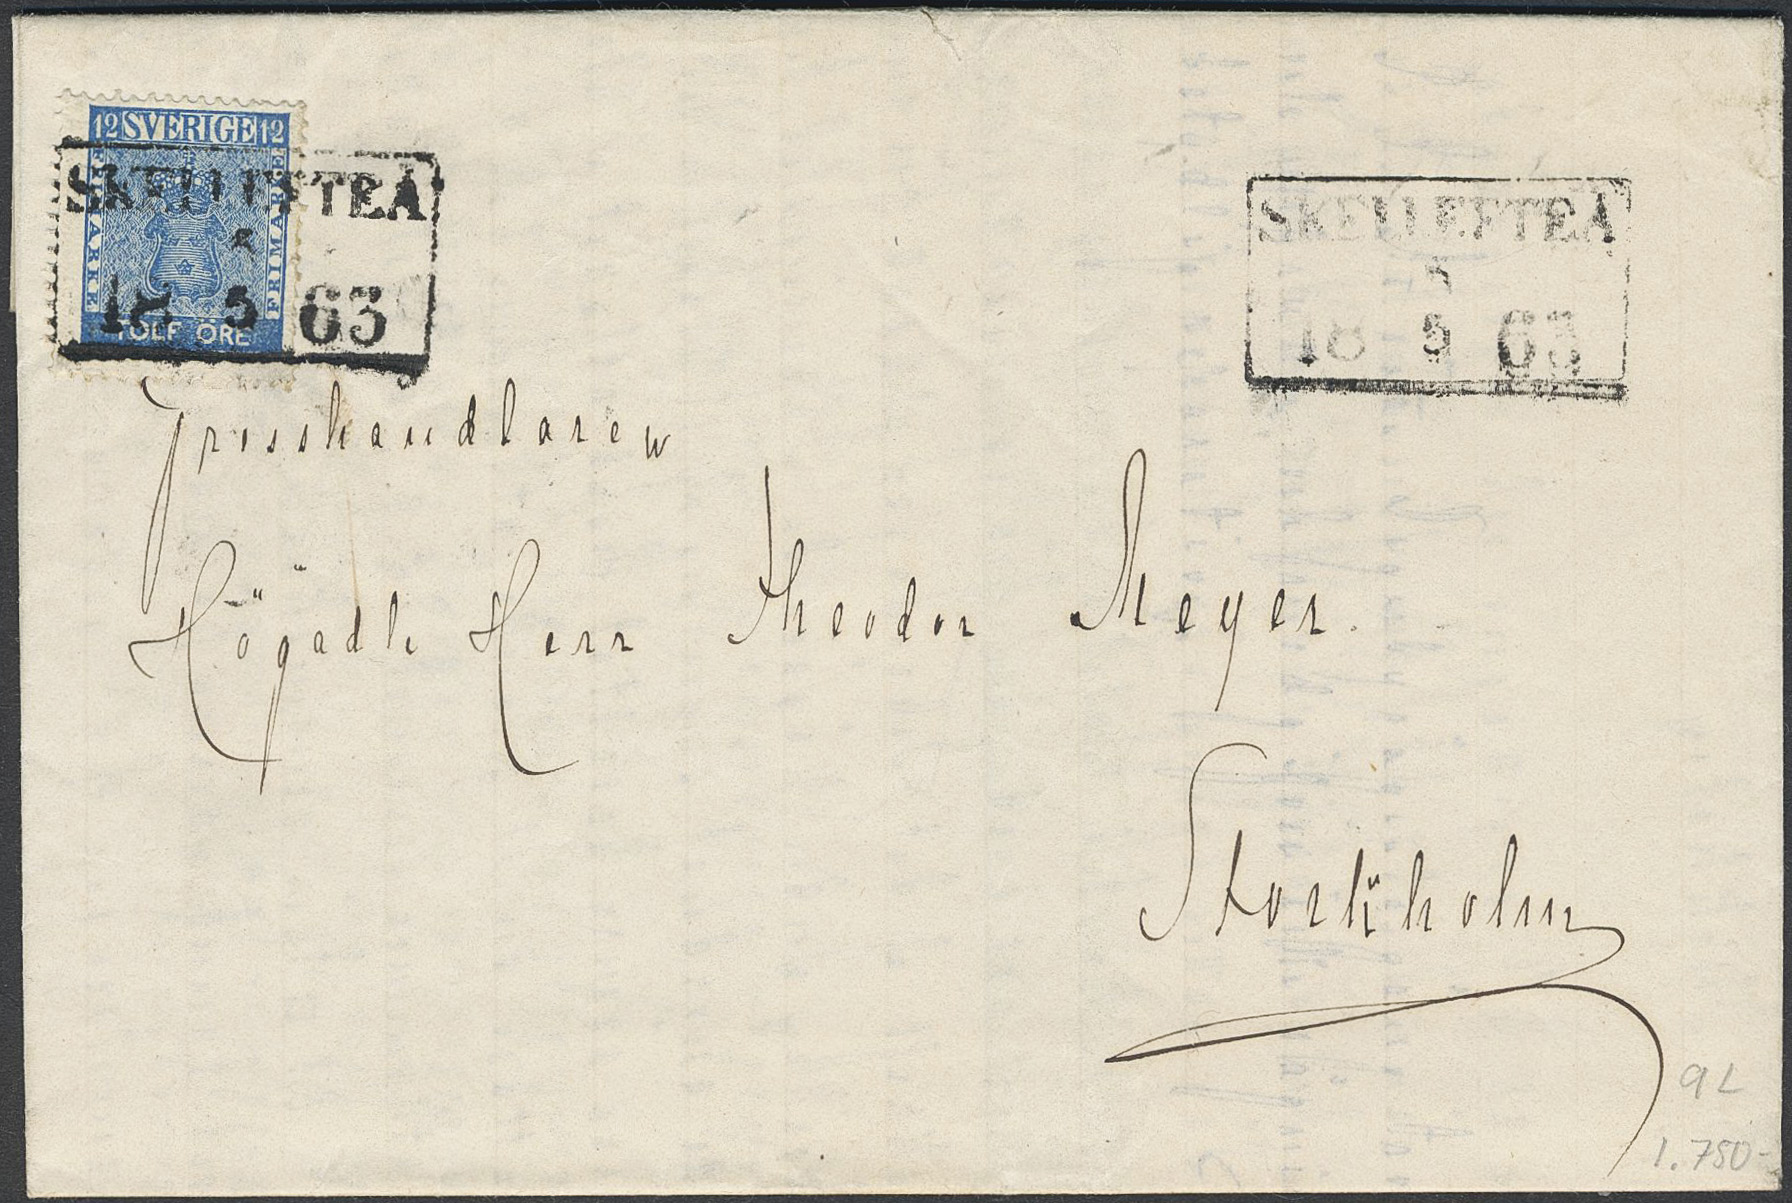 12 SVERIGE 12
FRIMÄRKE
FRIMÄRKE
TOLF ÖRE
SKELLEFTEÅ
18 5 63
SKELLEFTEÅ
18 5 63
Grosshandlaren
Högädle Herr Theodor Meyer.
Stockholm
9 L
1.750-